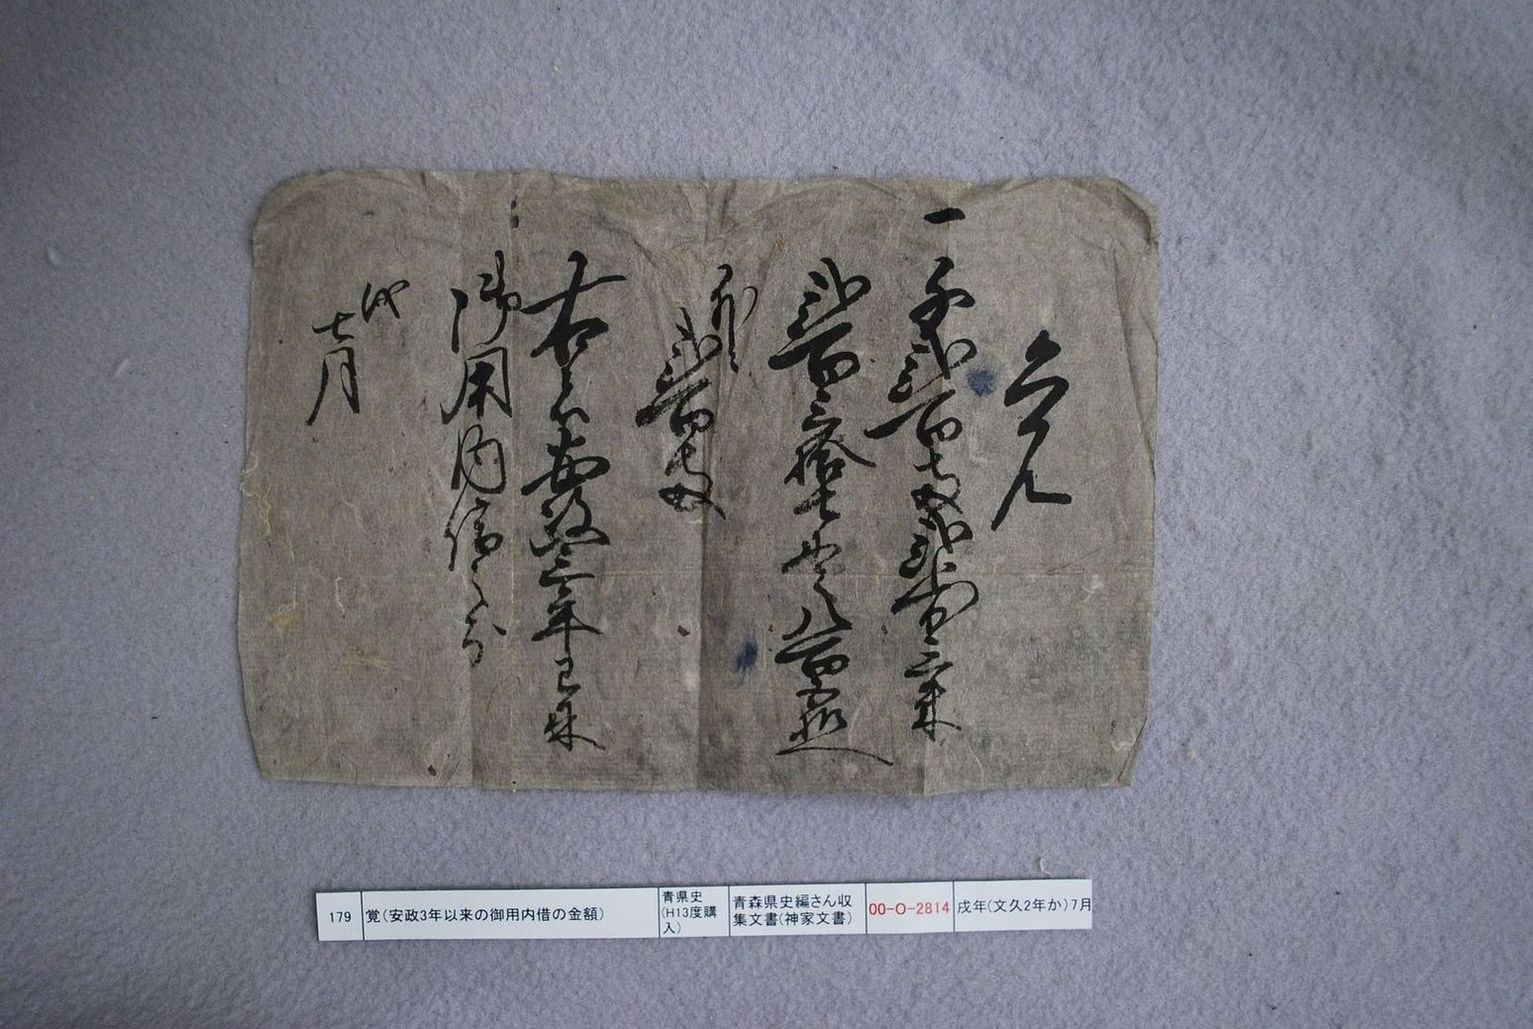 覚
一 千弐百
弐百三拾七
弐百
右者安政三年已来
御用内借之分
戌
七月
179
覚(安政3年以来の御用内借の金額)
青県史
(H13度購
入)
青森県史編さん収
集文書(神家文書)
00-O-2814
戌年(文久2年か)7月